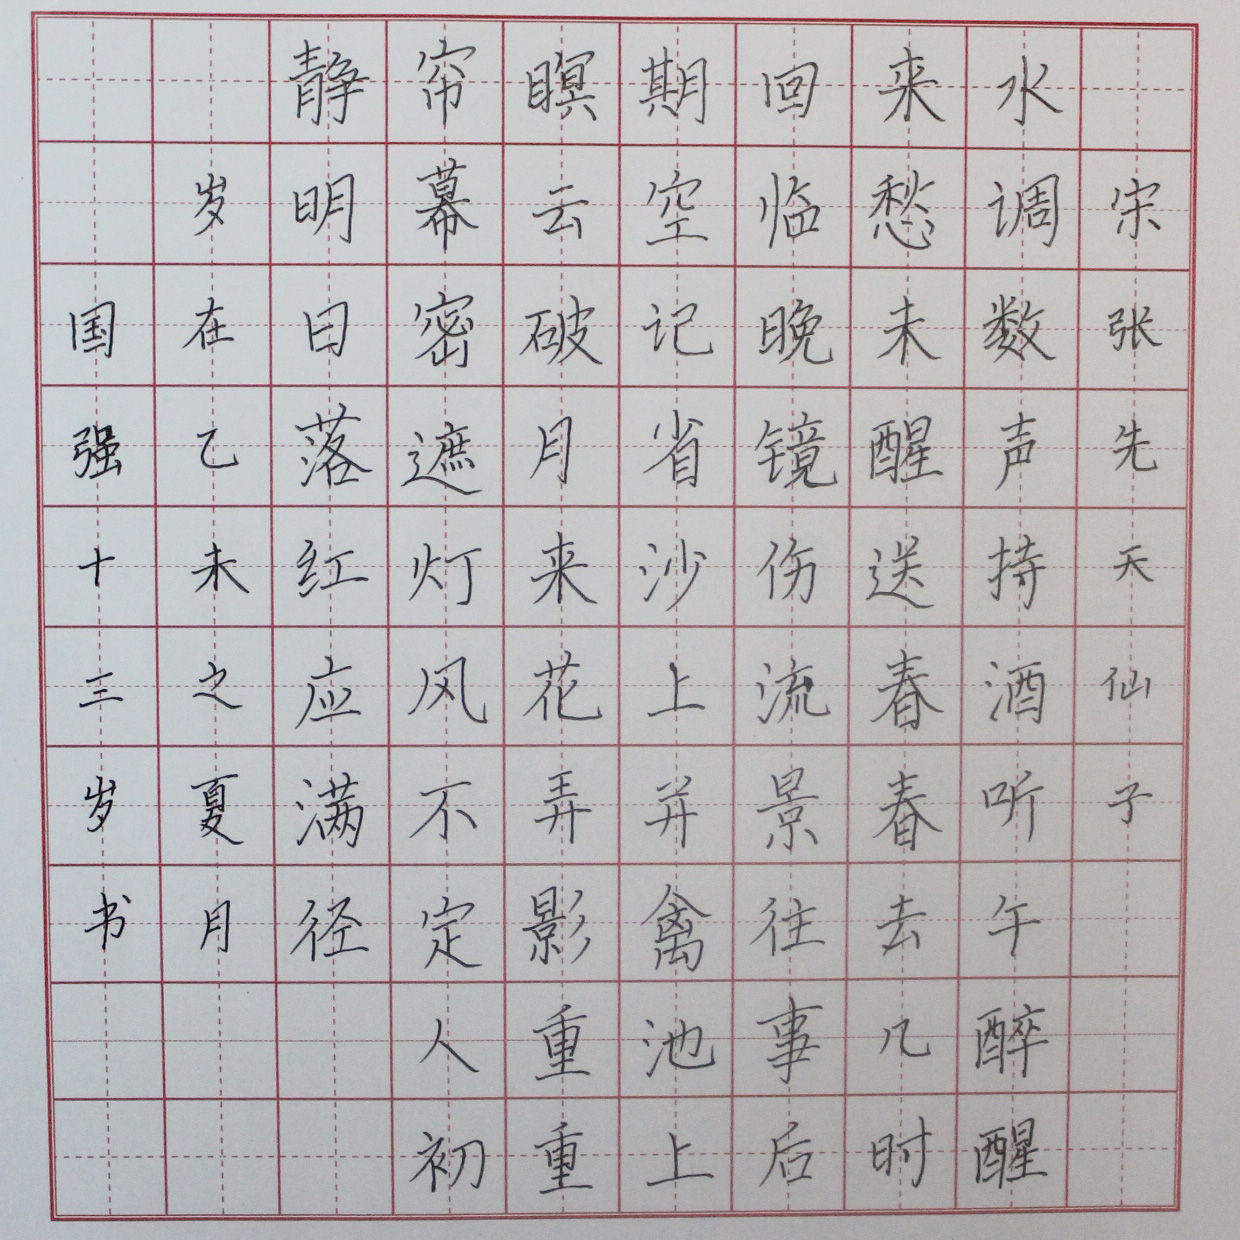 宋张先天仙子
水调数声持酒听午醉醒
来愁未醒送春春去几时
回临晚镜伤流景往事后
期空记省沙上并禽池上
瞑云破月来花弄影重重
帘幕密遮灯风不定人初
静明日落红应满径
岁在乙未之夏月
国强十三岁书